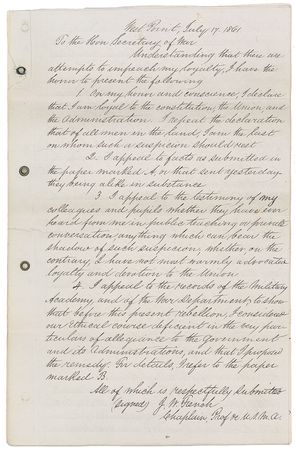 West Point, July 17. 1861
To the Hon. Secretary of War
Understanding that there are
attempts to impeach my loyalty, I have the
honor to present the following
1. On my honor and conscience, I declare
that I am loyal to the constitution, the Union, and
the Administration. I repeat the declaration
that of all men in the land, I am the last
on whom such a suspicion should rest
2. I appeal to facts as submitted in
the paper marked A, or that sent yesterday
they being alike in substance
3. I appeal to the testimony of my
colleagues and pupils whether they have ever
heard from me in public teaching or private
conversation anything which can bear the
shadow of such suspicion; whether, on the
contrary, I have not most warmly advocated
loyalty and devotion to the Union
4. I appeal to the records of the Military
Academy, and of the War Department, to show
that before this present rebellion, I considered
our ethical course deficient in the very par-
ticulars of allegiance to the Government
and its Administrations, and that I proposed
the remedy. For details, I refer to the paper
marked B.
All of which is respectfully submitted
(signed) J. W. French
Chaplain, Prof &c U.S.M.A.